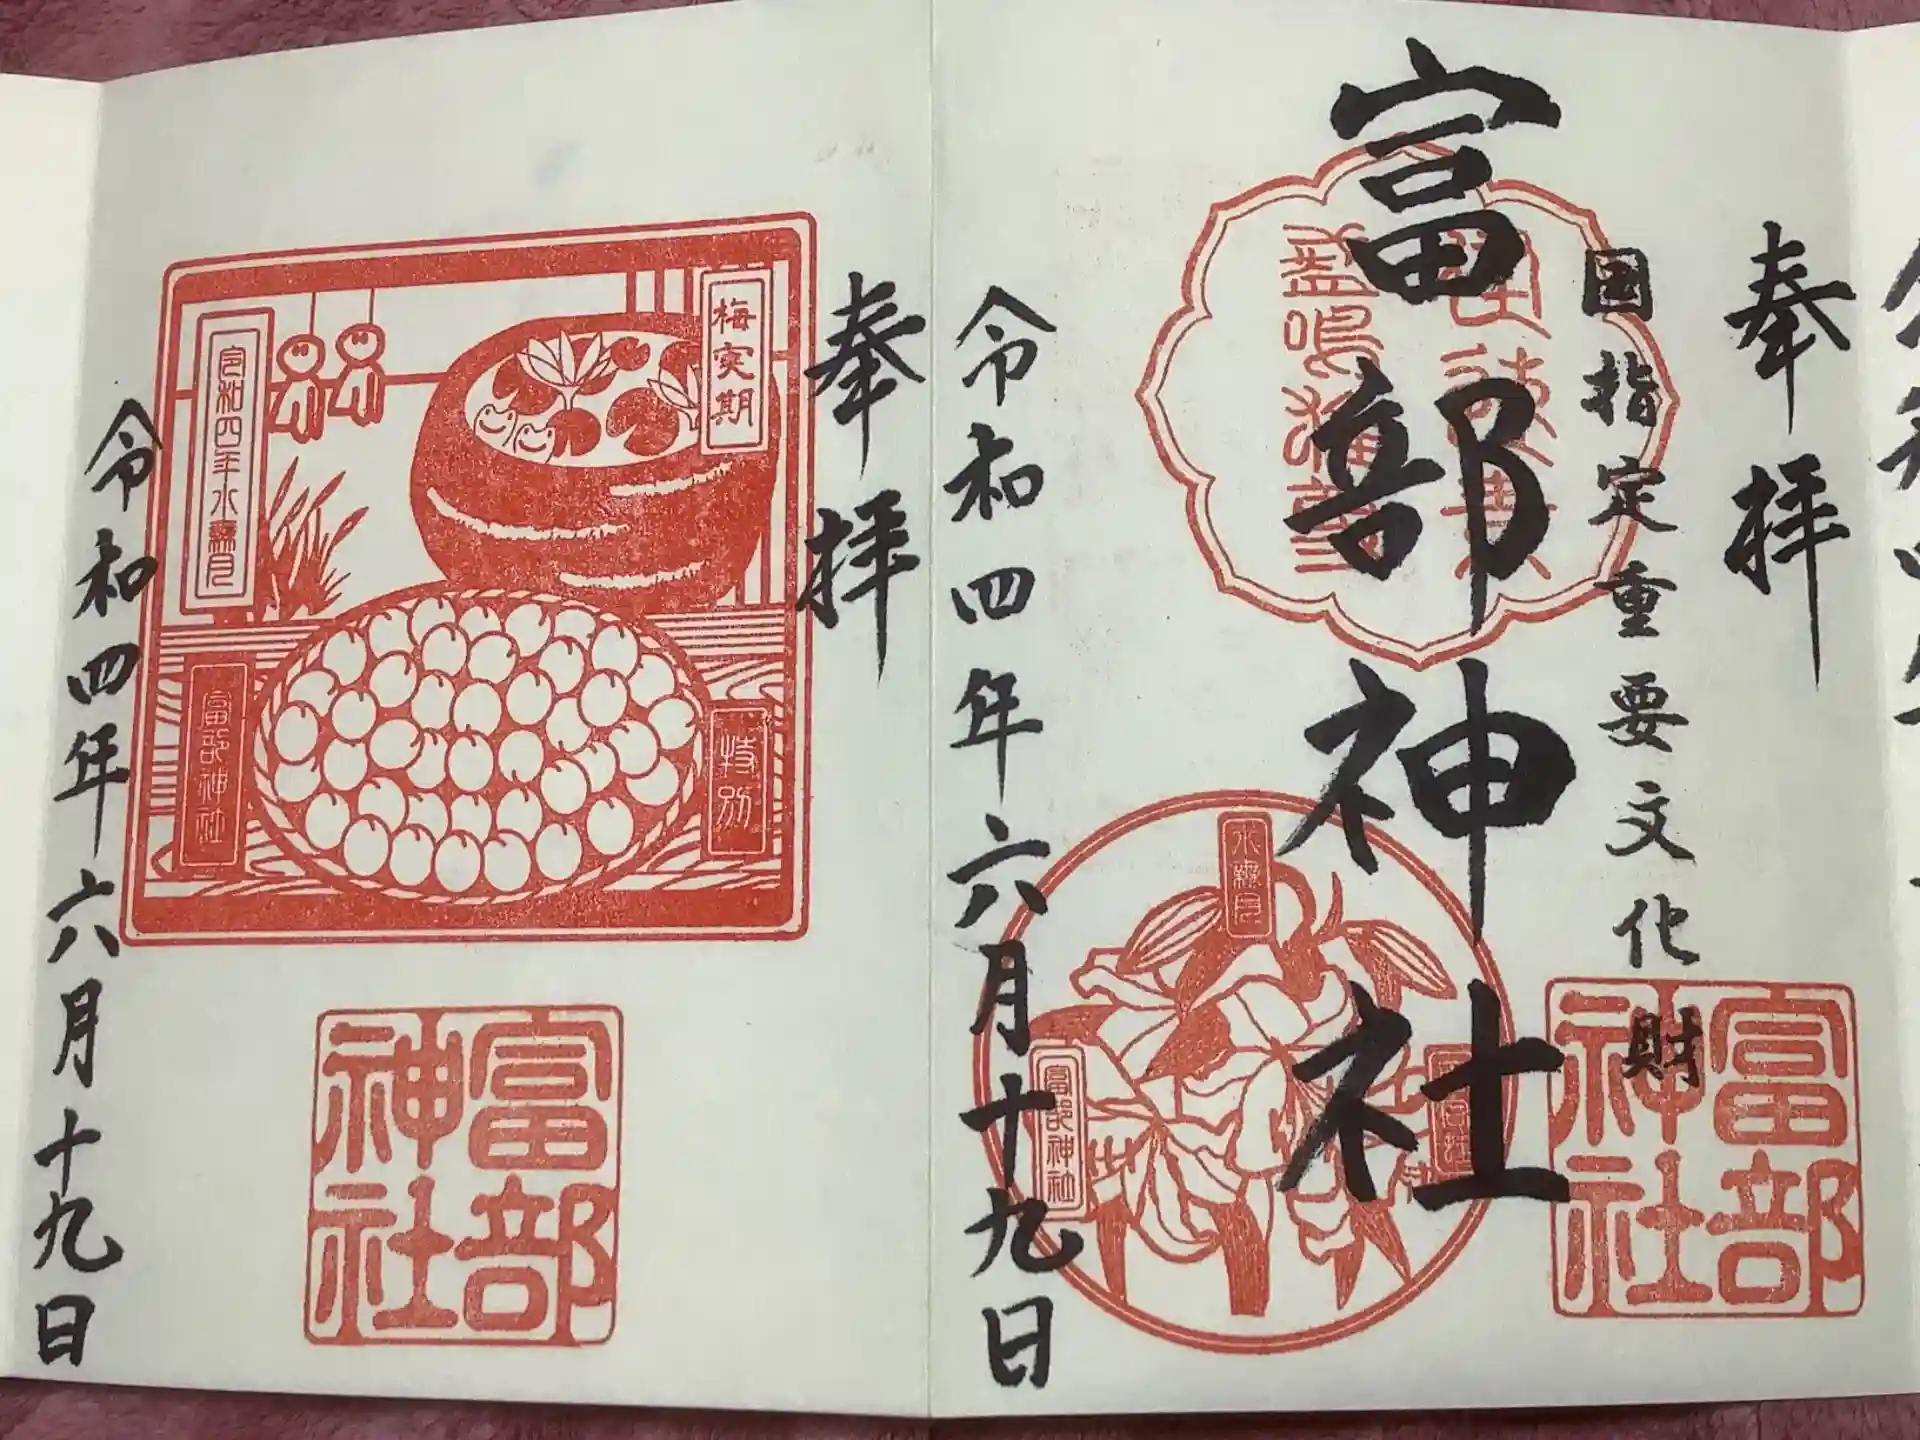 奉拝
国指定重要文化財
富部神社
令和四年六月十九日
水無月
富部神社
富部神社
奉拝
梅実期
令和四年水無月
特別
富部神社
富部神社
令和四年六月十九日